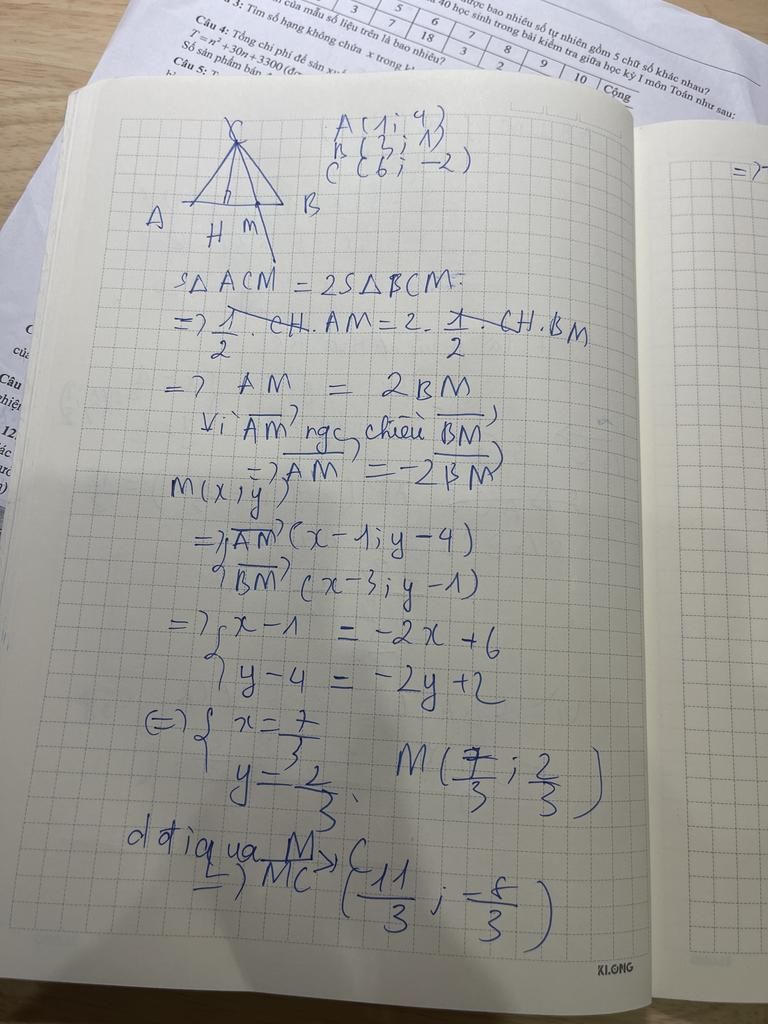 3: Tìm số hạng không chứa x trong
được bao nhiêu số tự nhiên gồm 5 chữ số khác nhau?
40 học sinh trong bài kiểm tra giữa học kỳ I môn Toán như sau:
5 6 7 8 9 10 Cộng
3 7 18 3 2
của mẫu số liệu trên là bao nhiêu?
Câu 4: Tổng chi phí để sản
T=n²+30n+3300
Số sản phẩm bán
Câu 5:
C
A B
H M
A(1;4)
B(3;1)
C(6;-2)
SΔACM = 2SΔBCM
=> 1/2 . CH.AM = 2. 1/2 . CH.BM
=> AM = 2BM
Vì AM→ ngc chiều BM→
=> AM→ = -2BM→
M(x;y)
=> { AM→ (x-1;y-4)
BM→ (x-3;y-1)
=> { x-1 = -2x+6
y-4 = -2y+2
<=> { x = 7/3
y = 2/3
M(7/3 ; 2/3)
d đi qua M, C
=> MC→ (11/3 ; -8/3)
=>
KLONG
Câu
12